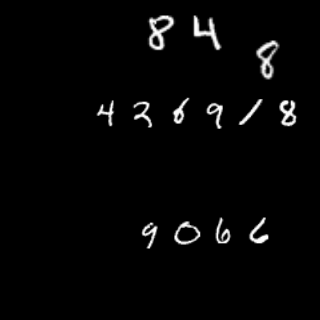 84
8
426918
9066